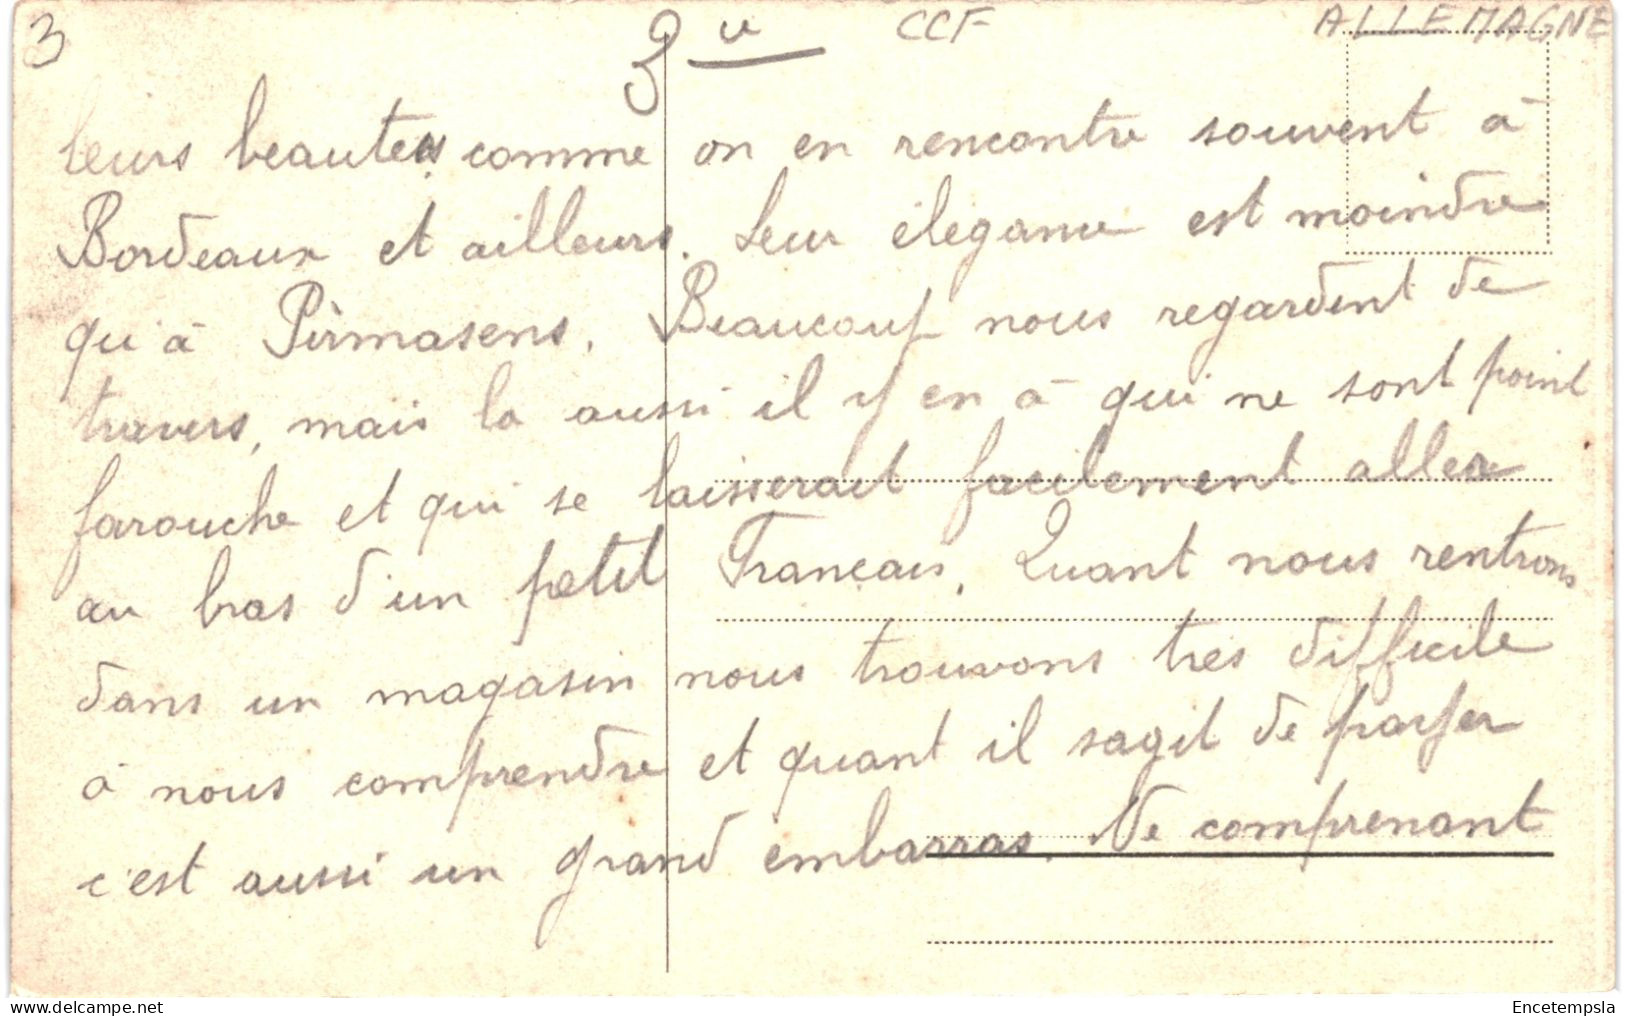 3
3 v
CCF
ALLEMAGNE
leurs beautés comme on en rencontre souvent à
Bordeaux et ailleurs. Leur élégance est moindre
qu'à Pirmasens. Beaucoup nous regardent de
travers, mais la aussi il y en à qui ne sont point
farouche et qui se laisserait facilement aller
au bras d'un petit Français. Quant nous rentrons
dans un magasin nous trouvons très difficile
à nous comprendre et quant il sagit de parler
c'est aussi un grand embarras. Ne comprenant
Encetempsla